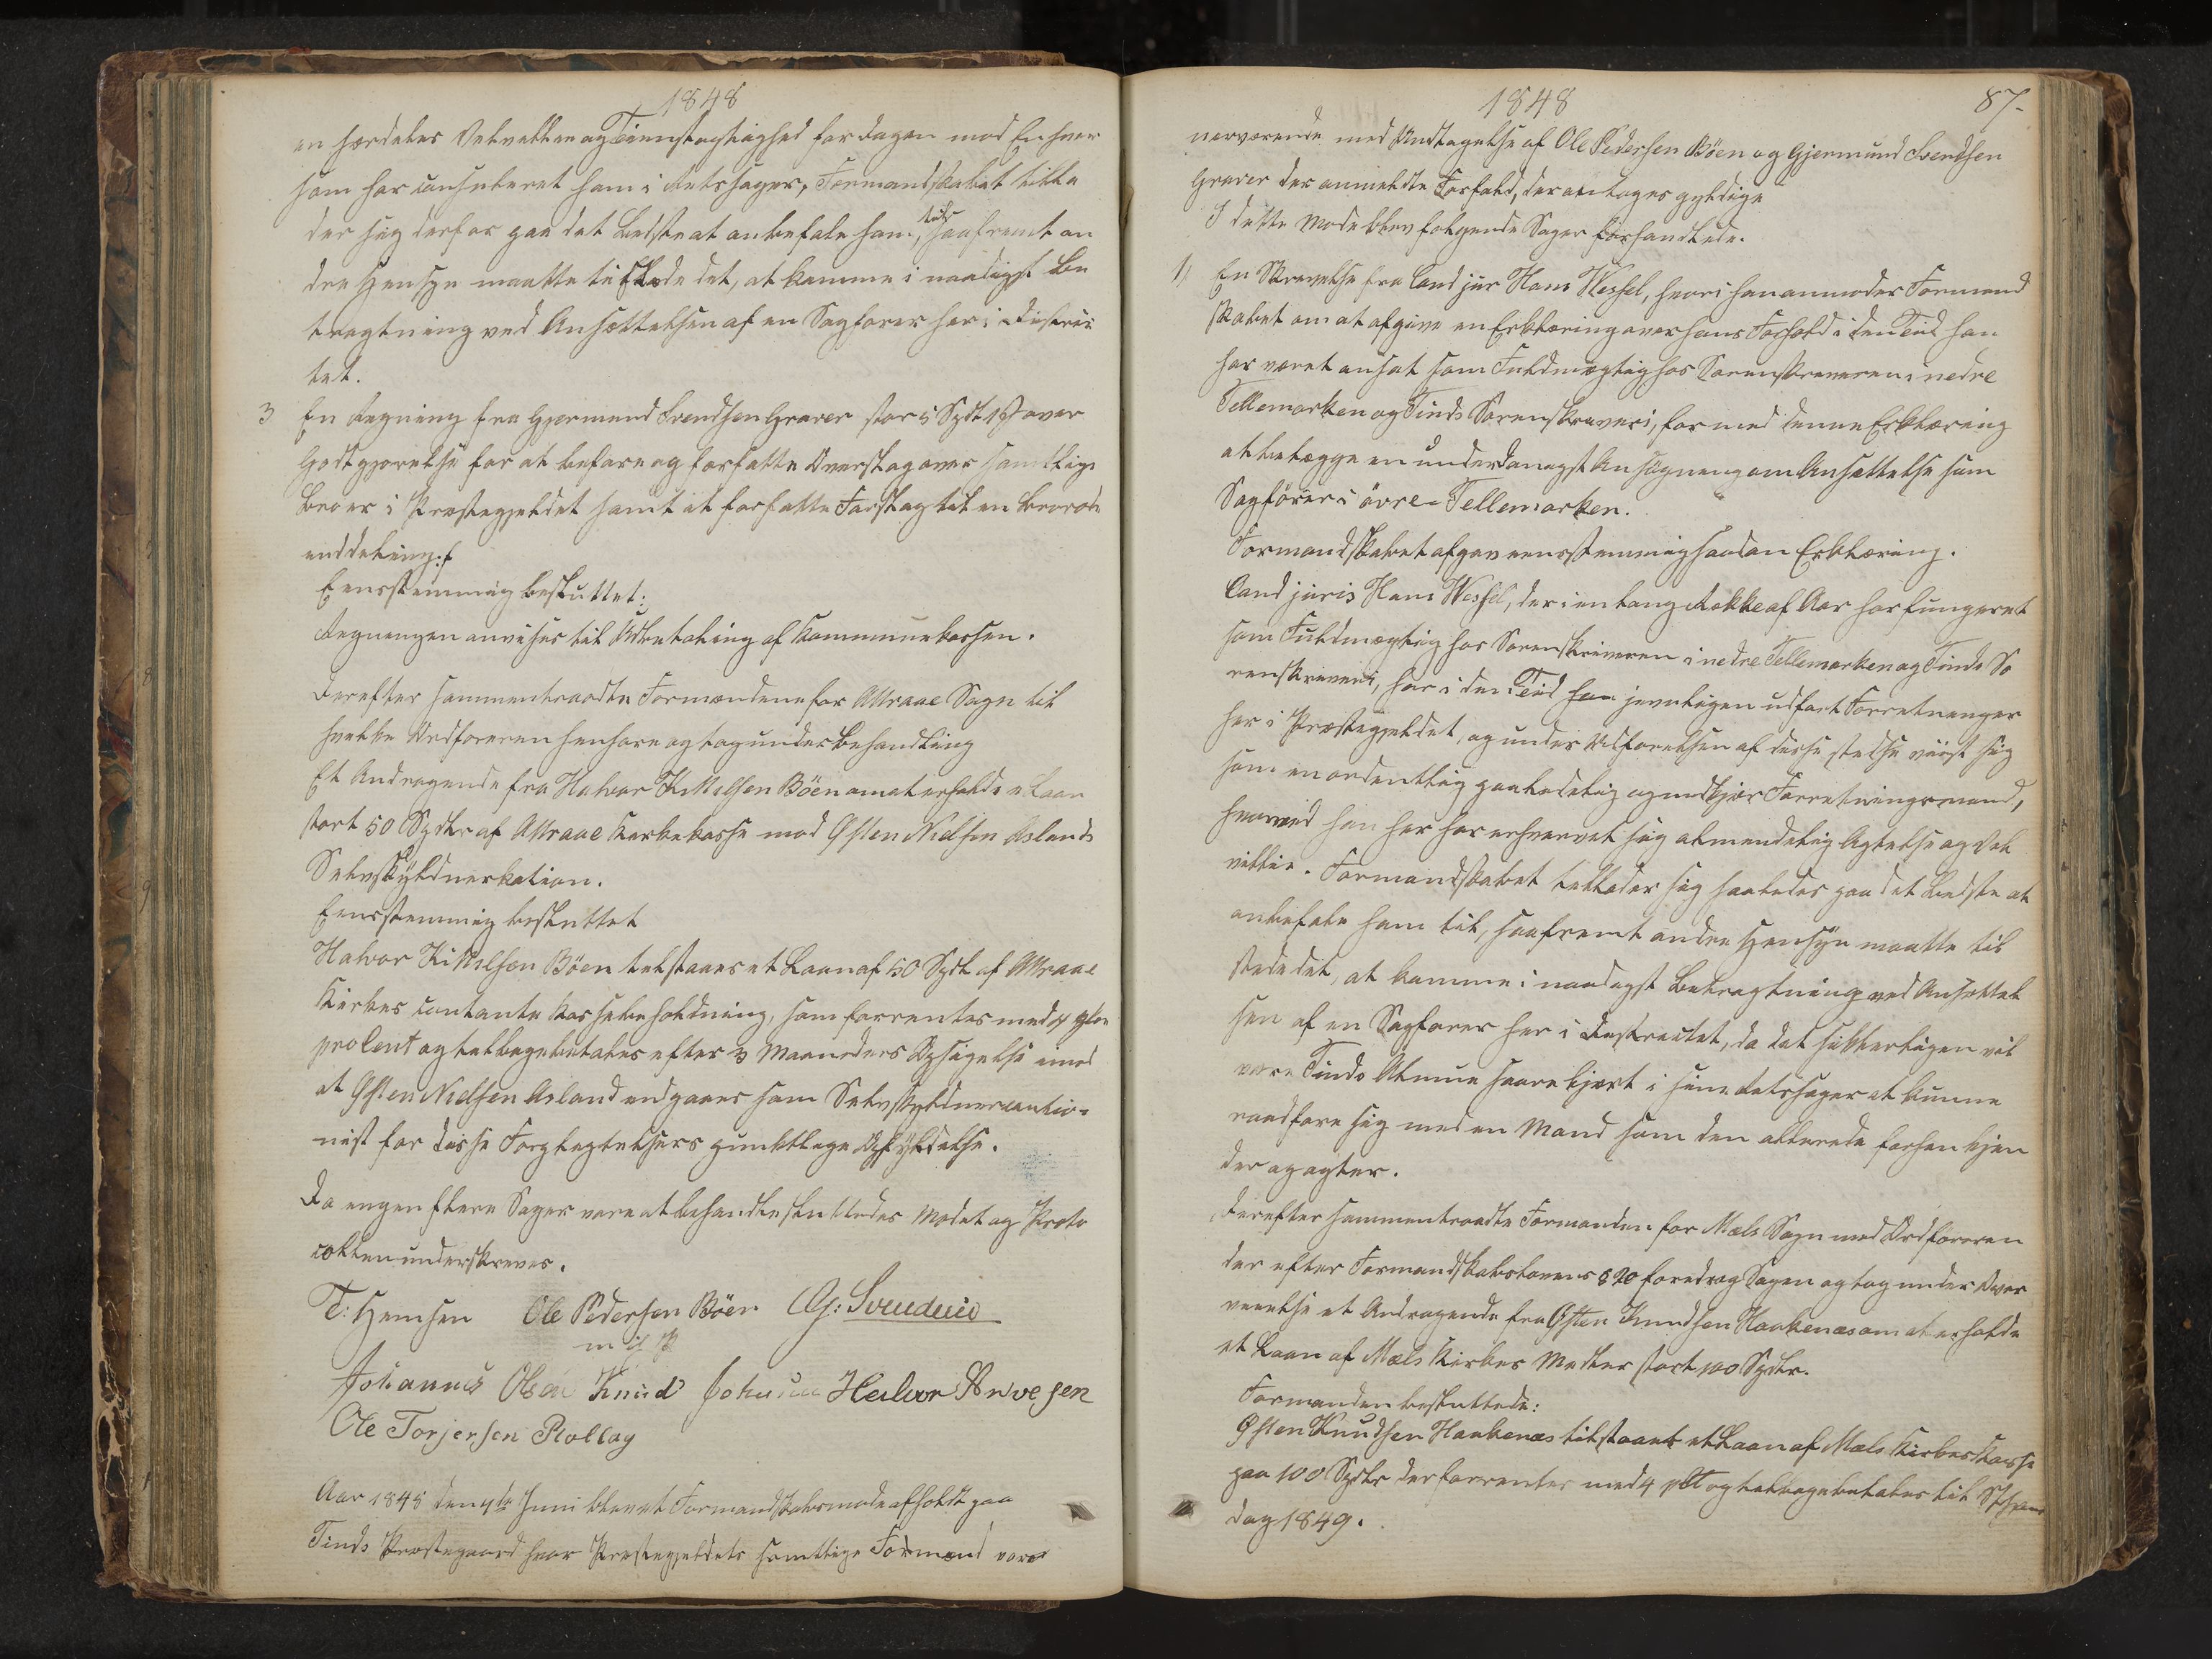 1848
en særdeles Velvillie og Tienstagtighed for Dagen mod Enhver
som har consuleret ham i Retssager, Formandskabet tilla
der sig derfor paa det Bedste at anbefale ham, til, saafremt an
dre Hensyn maatte tilstede det, at komme i naadigst Be
tragtning ved Ansættelsen af en Sagfører her i Distric
tet.
3 En Regning fra Gjermund Svendsen Graver stor 5 Spdl over
Godtgjørelse for at befare og forfatte Overslag over samtlige
Broer i Præstegjeldet samt at forfatte Forslag til en Brorode
inddeling.
Eensstemmig besluttet:
Regningen anvises til Udbetaling af Kommunekassen.
Derefter sammentraadte Formændene for Attraae Sogn til
hvilke Ordføreren henhøre og tog under Behandling
Et Andragende fra Halvor Kittilsen Böen om at erholde et Laan
stort 50 Spdlr af Attraae Kirkekasse mod Østen Nielsen Aslands
Selvskyldnerkation.
Eensstemmig besluttet
Halvor Kittilsen Böen tilstaaes et Laan af 50 Spdl af Attraae
Kirkes contante Kassebeholdning, som forrentes med 4
pro Cent og tilbagebetales efter 3 Maaneders Opsigelse imod
at Østen Nielsen Asland indgaaer som Selvskyldnercautio-
nist for disse Forpligtelsers punktlige Opfyldelse.
Da ingen flere Sager vare at behandle sluttedes Mødet og Proto
collen underskreves.
T: Hemsen Ole Pedersen Böen G: Svendsen
m i P
Johannes Olsen Knud Johnsen Halvor Arvesen
Ole Torjersen Rollag
Aar 1848 den 4de Juni blev et Formandskabsmøde afholdt paa
Tinds Præstegaard hvor Præstegjeldets samtlige Formænd vare
1848
87-
nærværende med Undtagelse af Ole Pedersen Böen og Gjermund Svendsen
Graver der anmeldte Forfald, der antages gyldige
I dette Møde blev følgende Sager forhandlede.
1) En Skrivelse fra Cand jur Hans Wessel, hvori han anmoder Formand
skabet om at afgive en Erklæring over hans Forhold i den Tid han
har været ansat som Fuldmægtig hos Sorenskriveren i nedre
Tellemarken og Tinds Sorenskriveri, for med denne Erklæring
at belægge en underdanigst Ansøgning om Ansættelse som
Sagfører i övre-Tellemarken.
Formandskabet afgav eensstemmig saadan Erklæring.
Cand juris Hans Wessel, der i en lang Række af Aar har fungeret
som Fuldmægtig hos Sorenskriveren i nedre Tellemarken og Tinds So
renskriveri, har i den Tid han jevnligen udført Forretninger
her i Præstegjeldet, og under Udførelsen af disse stedse viist sig
som en ordentlig paalidelig og Forretningsmand,
hvorved han her har erhvervet sig almindelig Agtelse og Vel
villie. Formandskabet tillader sig saaledes paa det Bedste at
anbefale ham til, saafremt andre Hensyn maatte til
stede det, at komme i naadigst Betragtning ved Ansættel
sen af en Sagfører her i Districtet, da det sikkerligen vil
være Tinds Almue saare kjært i sine Retssager at kunne
raadføre sig med en Mand som den allerede forhen kjen
der og agter.
Derefter sammentraadte Formanden for Mæls Sogn med Ordføreren
der efter Formandskabslovens § 20 foredrog Sagen og tog under Over
veielse et Andragende fra Østen Knudsen Haakenæs om at erholde
et Laan af Mæls Kirkes Midler stort 100 Spdlr.
Formanden besluttede:
Østen Knudsen Haakenæs tilstaaes et Laan af Mæls Kirkes Kasse
paa 100 Spdlr der forrentes med 4 pCt og tilbagebetales til
dag 1849.